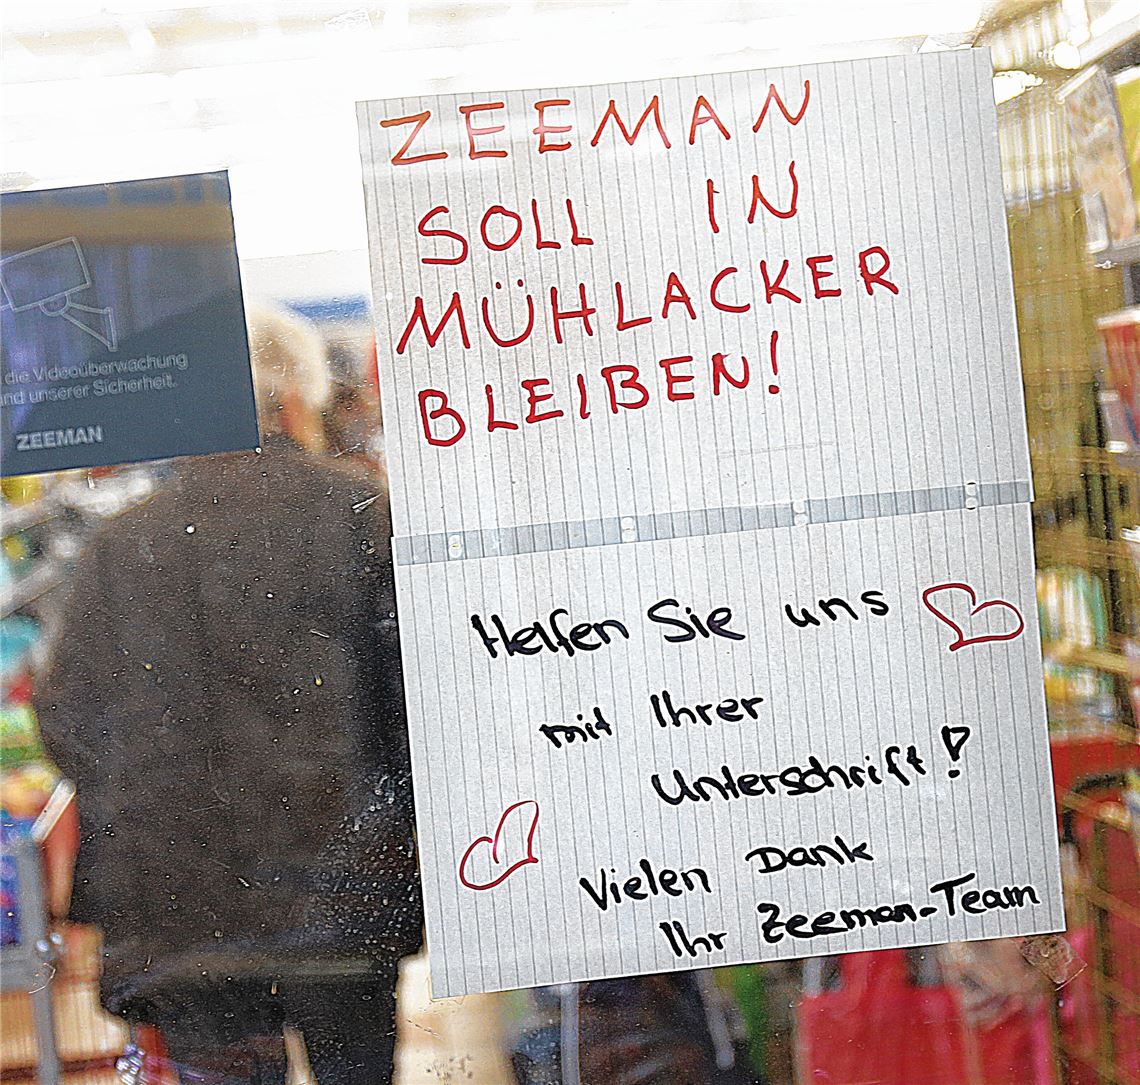 ZEEMAN
SOLL IN
MÜHLACKER
BLEIBEN!
Helfen Sie uns
mit Ihrer
Unterschrift!
Vielen Dank
Ihr Zeeman-Team
die Videoüberwachung
unserer Sicherheit.
ZEEMAN